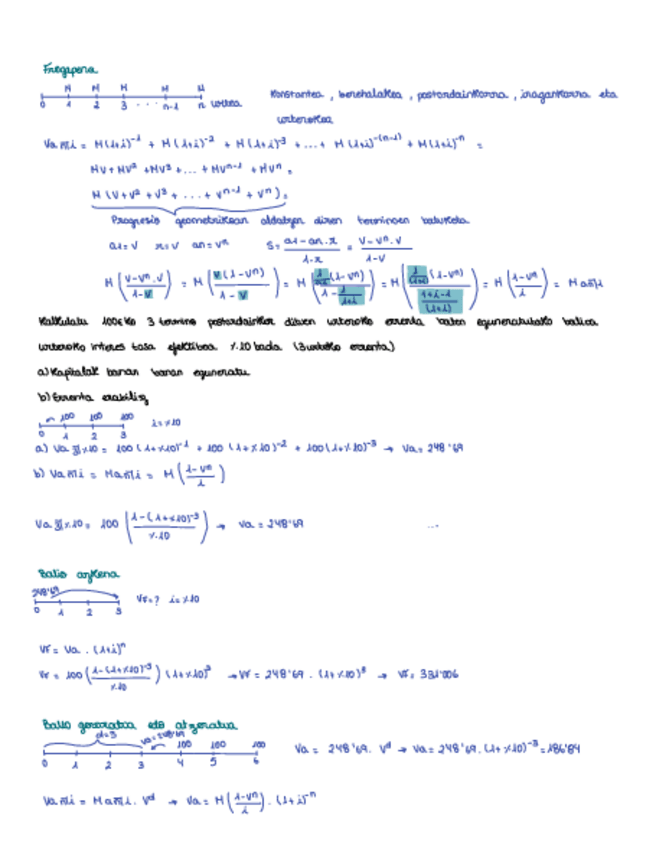 Frogapena
M M M M M
0 1 2 3 ... n-1 n urtea
Konstantea, berehalakoa, postordainkorra, iragankorra eta
urterokoa
Va n̅|i = M(1+i)⁻¹ + M(1+i)⁻² + M(1+i)⁻³ + ... + M(1+i)⁻⁽ⁿ⁻¹⁾ + M(1+i)⁻ⁿ =
MV + MV² + MV³ + ... + MVⁿ⁻¹ + MVⁿ =
M (V + V² + V³ + ... + Vⁿ⁻¹ + Vⁿ) =
Progresio geometrikoan aldatzen diren terminoen batuketa
a1 = V r = V an = Vⁿ S = (a1 - an · r)/(1 - r) = (V - Vⁿ · V)/(1 - V)
M ((V - Vⁿ · V)/(1 - V)) = M (V (1 - Vⁿ)/(1 - V)) = M ((1/(1+i)) (1 - Vⁿ)/(1 - 1/(1+i))) = M ((1/(1+i)) (1 - Vⁿ)/((1+i-1)/(1+i))) = M ((1 - Vⁿ)/i) = M a n̅|i
Kalkulatu 100€ko 3 termino postordainkor dituen urteroko errenta baten eguneratutako balioa
urteroko interes tasa efektiboa %10 bada (3 urteko errenta)
a) Kapitalak banan banan eguneratu
b) Errenta erabiliz
100 100 100
0 1 2 3 i = %10
a) Va 3̅|%10 = 100 (1+%10)⁻¹ + 100 (1+%10)⁻² + 100 (1+%10)⁻³ → Va = 248'69
b) Va n̅|i = M a n̅|i = M ((1 - Vⁿ)/i)
Va 3̅|%10 = 100 ((1 - (1+%10)⁻³)/%10) → Va = 248'69 ...
Balio azkena
248'69
0 1 2 3 Vf = ? i = %10
Vf = Va · (1+i)ⁿ
Vf = 100 ((1 - (1+%10)⁻³)/%10) (1+%10)³ → Vf = 248'69 · (1+%10)³ → Vf = 331'006
Balio geroratua eta atzeratua
d=3 Va=248'69 100 100 100
0 1 2 3 4 5 6
Va = 248'69 · Vᵈ → Va = 248'69 · (1+%10)⁻³ = 186'84
Va n̅|i = M a n̅|i · Vᵈ → Va = M ((1 - Vⁿ)/i) · (1+i)⁻ⁿ